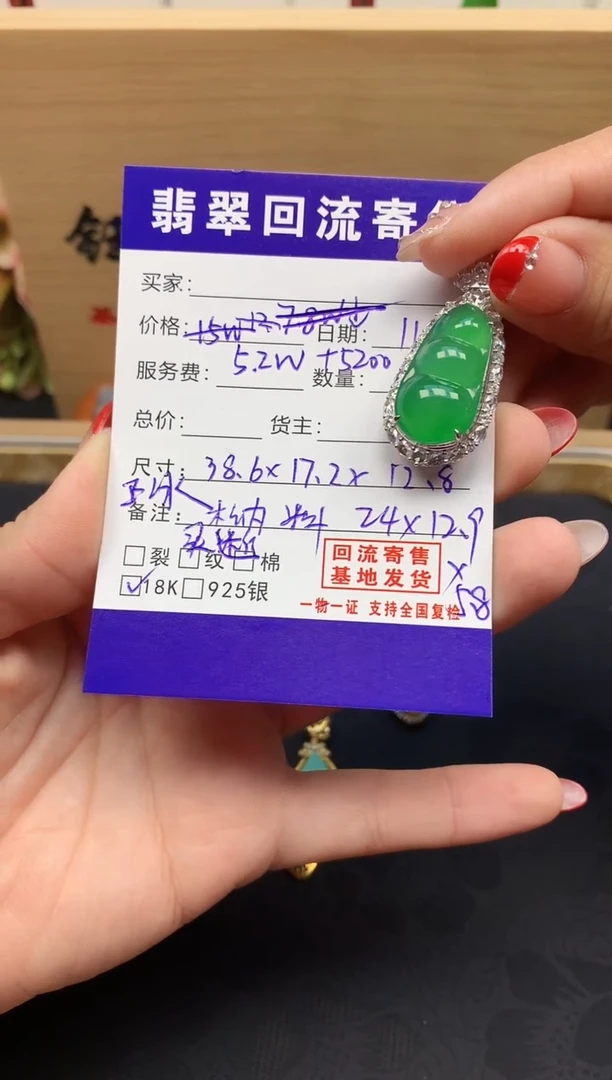 翡翠回流寄售
买家:
价格: 15W 12.78W 日期: 11
服务费: 5.2W +5200 数量:
总价: 货主:
尺寸: 38.6×17.2×12.8
备注: 24×12.9
×5.8
裂 纹 棉
✓18K 925银
回流寄售
基地发货
一物一证 支持全国复检